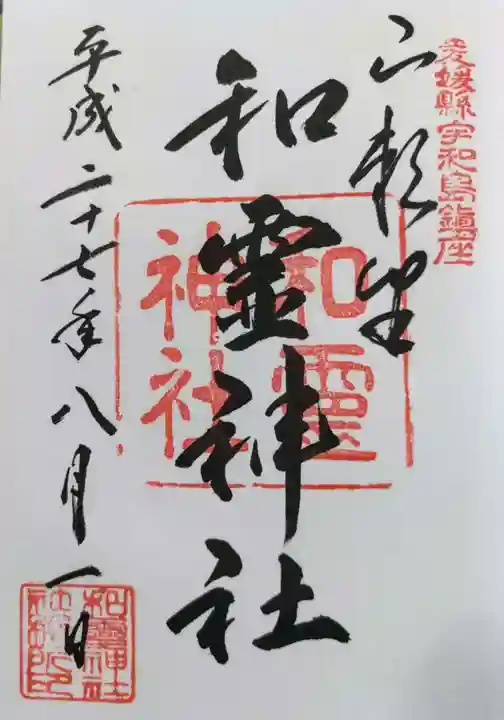 愛媛縣宇和島鎮座
和靈神社
和靈
神社
平成二十七年八月一日
和靈神社
社務所印